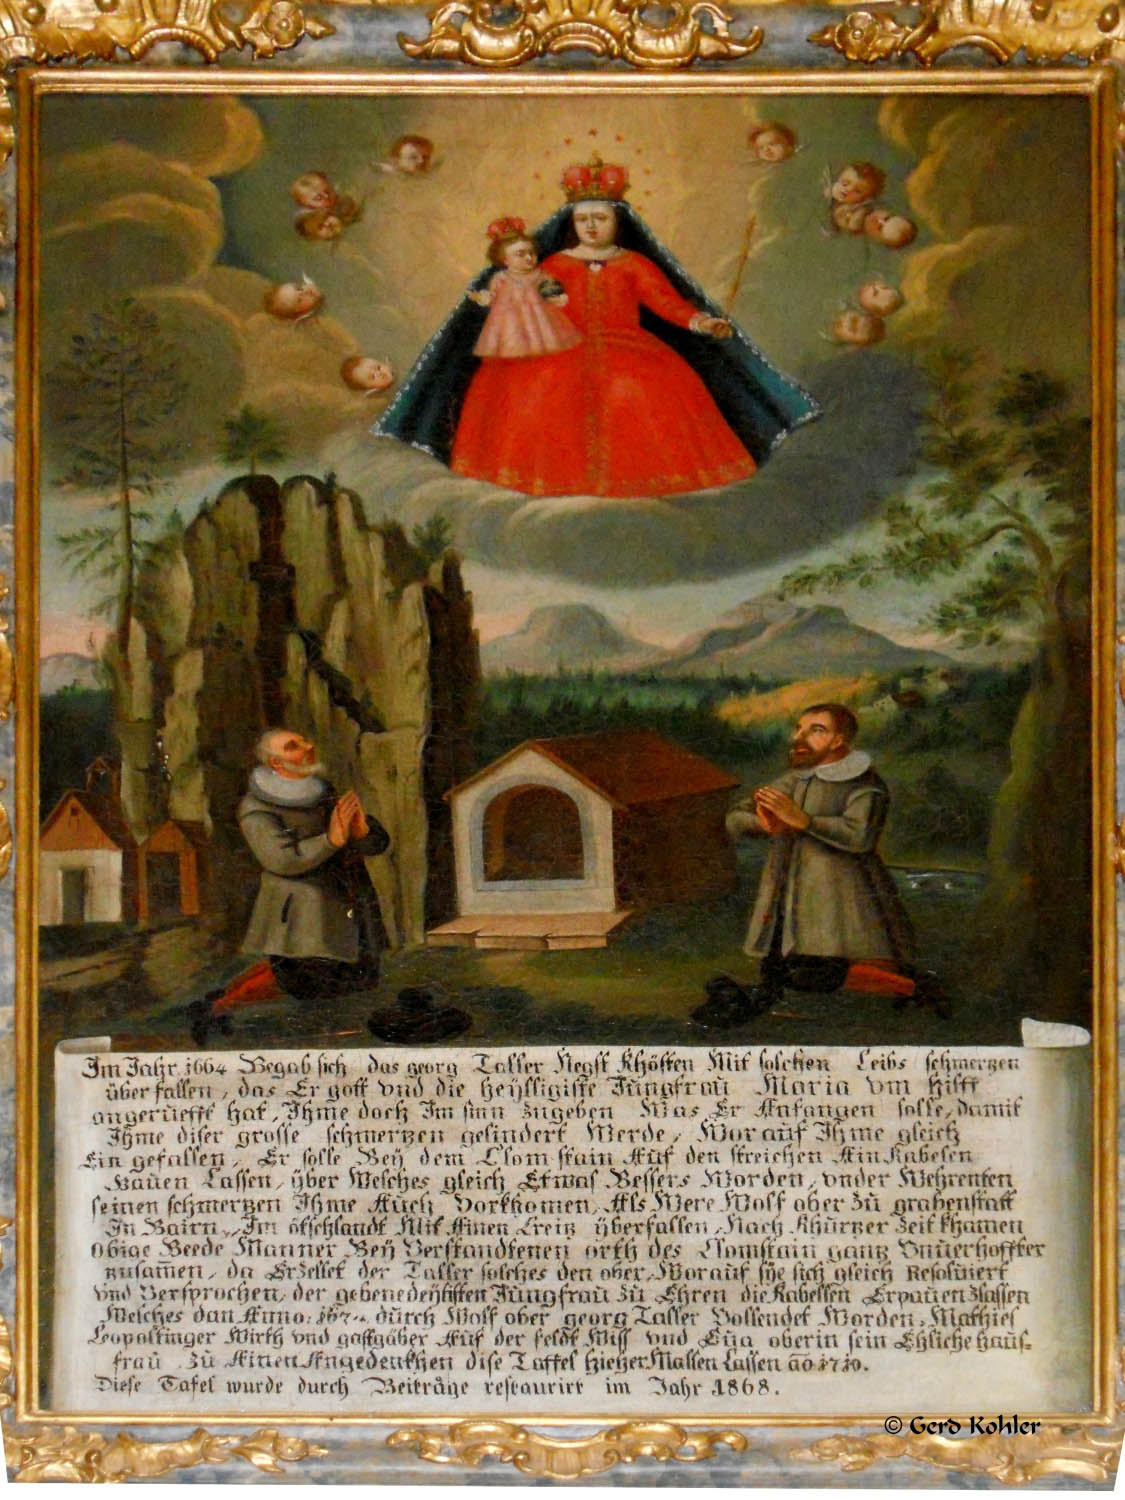 Im Jahr. 1664 Begab sich das georg Taller Negst Khösten Mit solchen Leibs schmerzen
überfallen, das Er gott vnd die heÿlligiste Jüngfraü Maria vm hilff
angerüefft hat, Ihme doch Im sinn zugeben Was Er Anfangen solle, damit
Ihme diser grosse schmertzen gelindert Werde, Worauf Ihme gleich
Ein gefallen, Er solle Beÿ dem Clomstain Auf den streichen Ain Kabelen
Bauen Lassen, ÿber Welches gleich Etwas Bessers Worden, vnder Wehrenten
seinen schmerzen Ihme Aŭch Vorkhomen, Als Were Wolf ober zŭ grabenstatt
In Bairn, Im Mit Ainen Creitz ÿberfallen, Nach Khŭrtzer Zeit khamen
obige Beede Manner Beÿ Verstandtenen orth des Clomstain gantz Vnŭerhoffter
zusam̄en, da Erzellet der Taller solches den ober, Worauf sÿe sich gleich Resolŭiert
Vnd Versprochen, der gebenedeÿtisten Jŭngfraŭ zŭ Ehren die Kabellen Erpaŭen Zlassen
Welches dan Anno. dŭrch Wolf ober georg Taller Vollendet Worden, Mathies
Leopoltinger Wirth vnd gastgäber Aŭf der feldt Miss vnd Eŭa oberin sein Ehliche haŭs=
fraŭ zŭ Ainen Angedenkhen dise Taffel hieherMallen Lassen ao 1710.
Diese Tafel wurde durch Beiträge restaurirt im Jahr 1868.
© Gerd Kohler